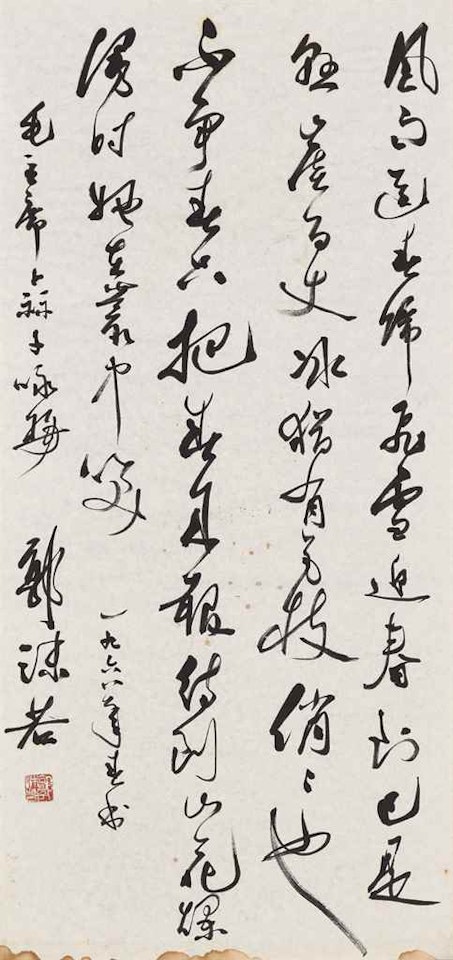 風雨送春歸飛雪迎春到已是
懸崖百丈冰猶有花枝俏〻也
不爭春只把春來報待到山花爛
漫时她在叢中笑
一九六八年春书
毛主席卜祘子咏梅
郭沫若